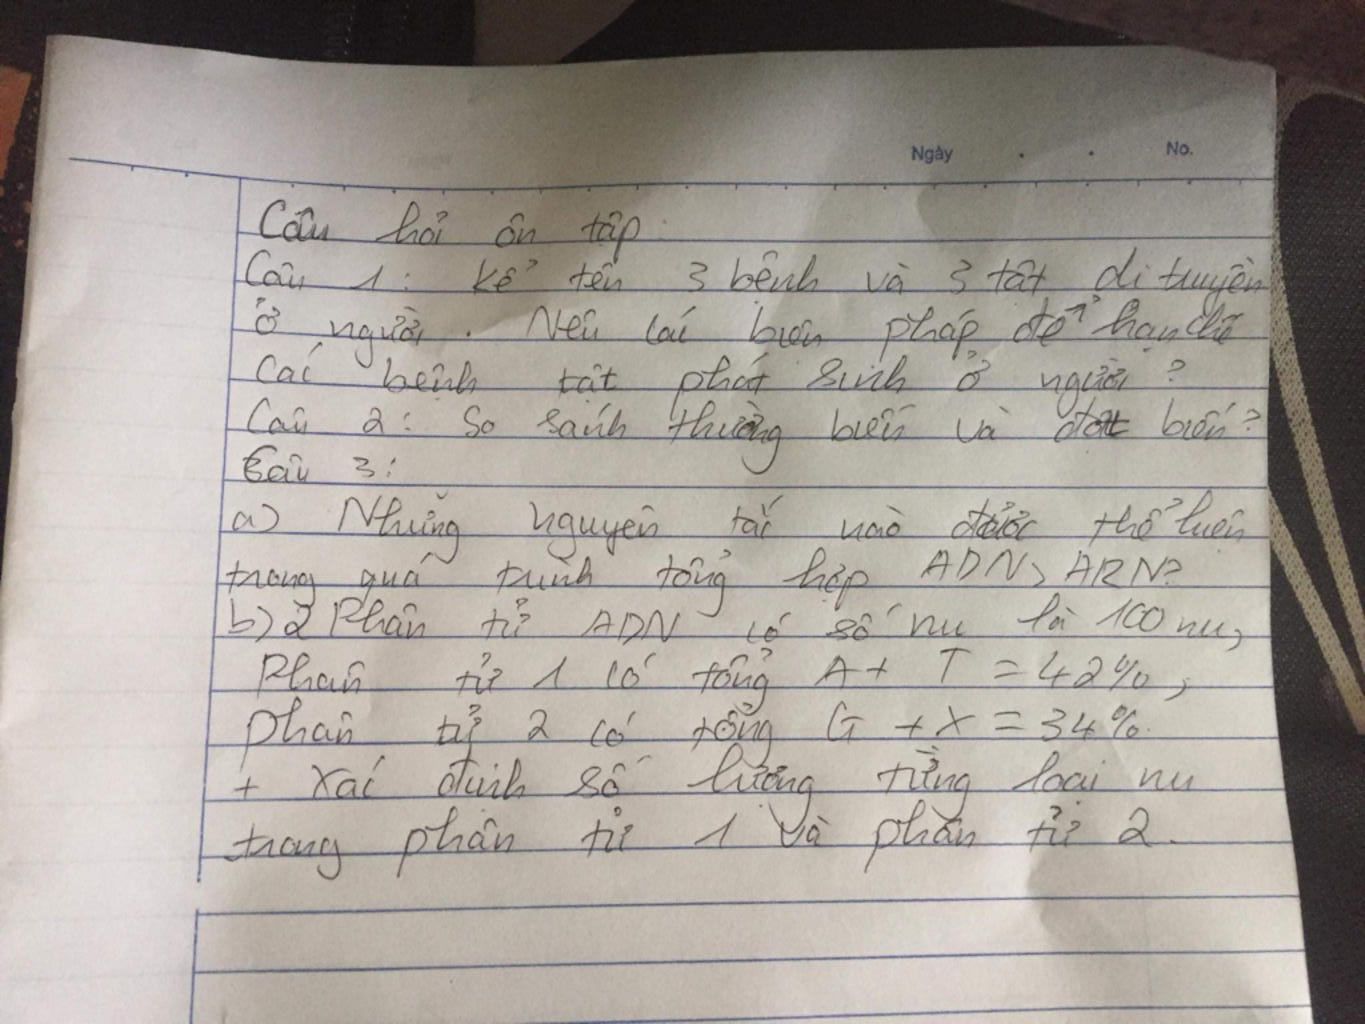 Ngày . . No.
Câu hỏi ôn tập
Câu 1: kể tên 3 bệnh và 3 tật di truyền
ở người. Nêu các biện pháp để hạn chế
các bệnh tật phát sinh ở người?
Câu 2: So sánh thường biến và đột biến?
Câu 3:
a) Những nguyên tắc nào được thể hiện
trong quá trình tổng hợp ADN, ARN?
b) 2 Phân tử ADN có số nu là 100 nu,
Phân tử 1 có tổng A + T = 42%,
phân tử 2 có tổng G + X = 34%.
+ Xác định số lượng từng loại nu
trong phân tử 1 và phân tử 2.